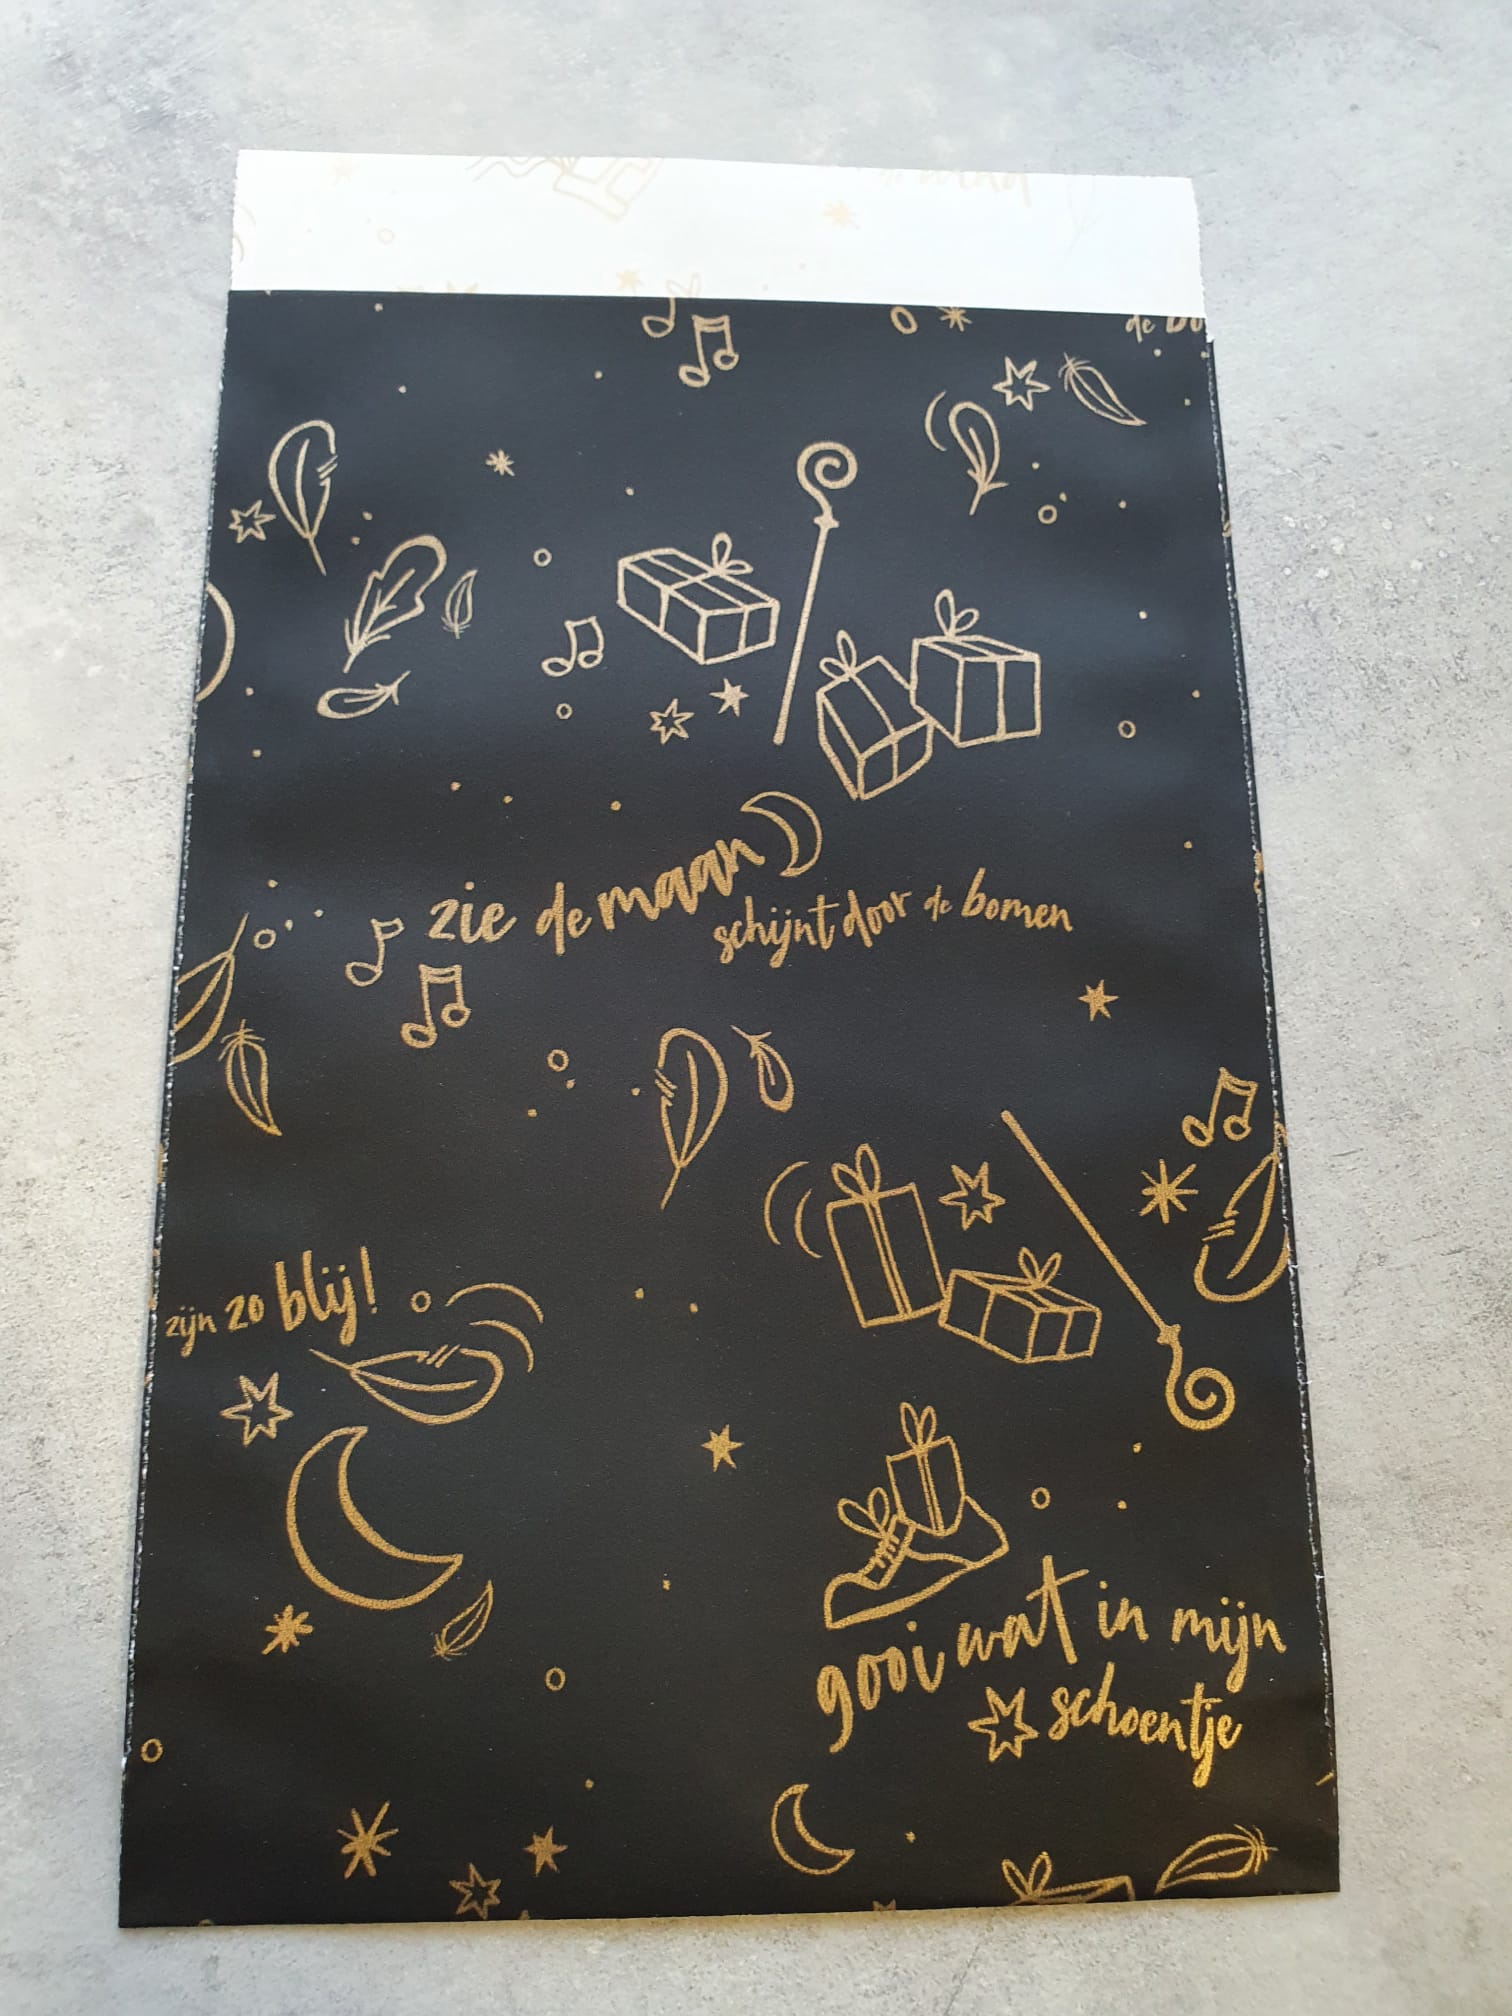 de bo
zie de maan
schijnt door de bomen
zijn zo blij!
gooi wat in mijn
schoentje